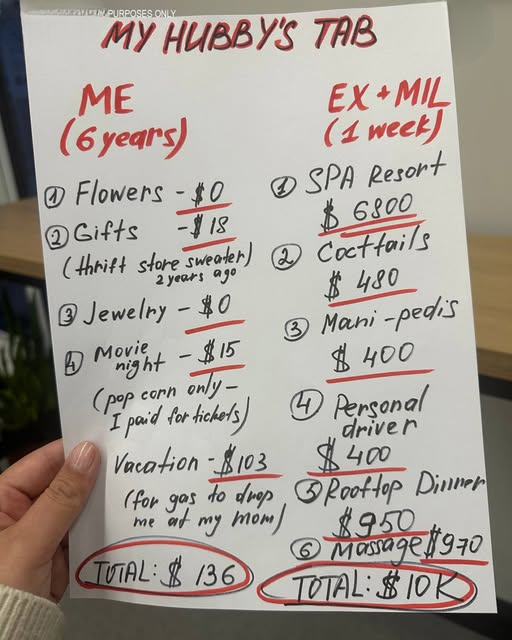 PURPOSES ONLY
MY HUBBY'S TAB
ME
(6 years)
① Flowers - $0
② Gifts - $18
(thrift store sweater)
2 years ago
③ Jewelry - $0
④ Movie
night - $15
(pop corn only -
I paid for tickets)
Vacation - $103
(for gas to drop
me at my mom)
TOTAL: $ 136
EX + MIL
(1 week)
① SPA Resort
$ 6800
② Cocttails
$ 480
③ Mani-pedis
$ 400
④ Personal
driver
$ 400
⑤ Rooftop Dinner
$950
⑥ Massage $970
TOTAL: $10K